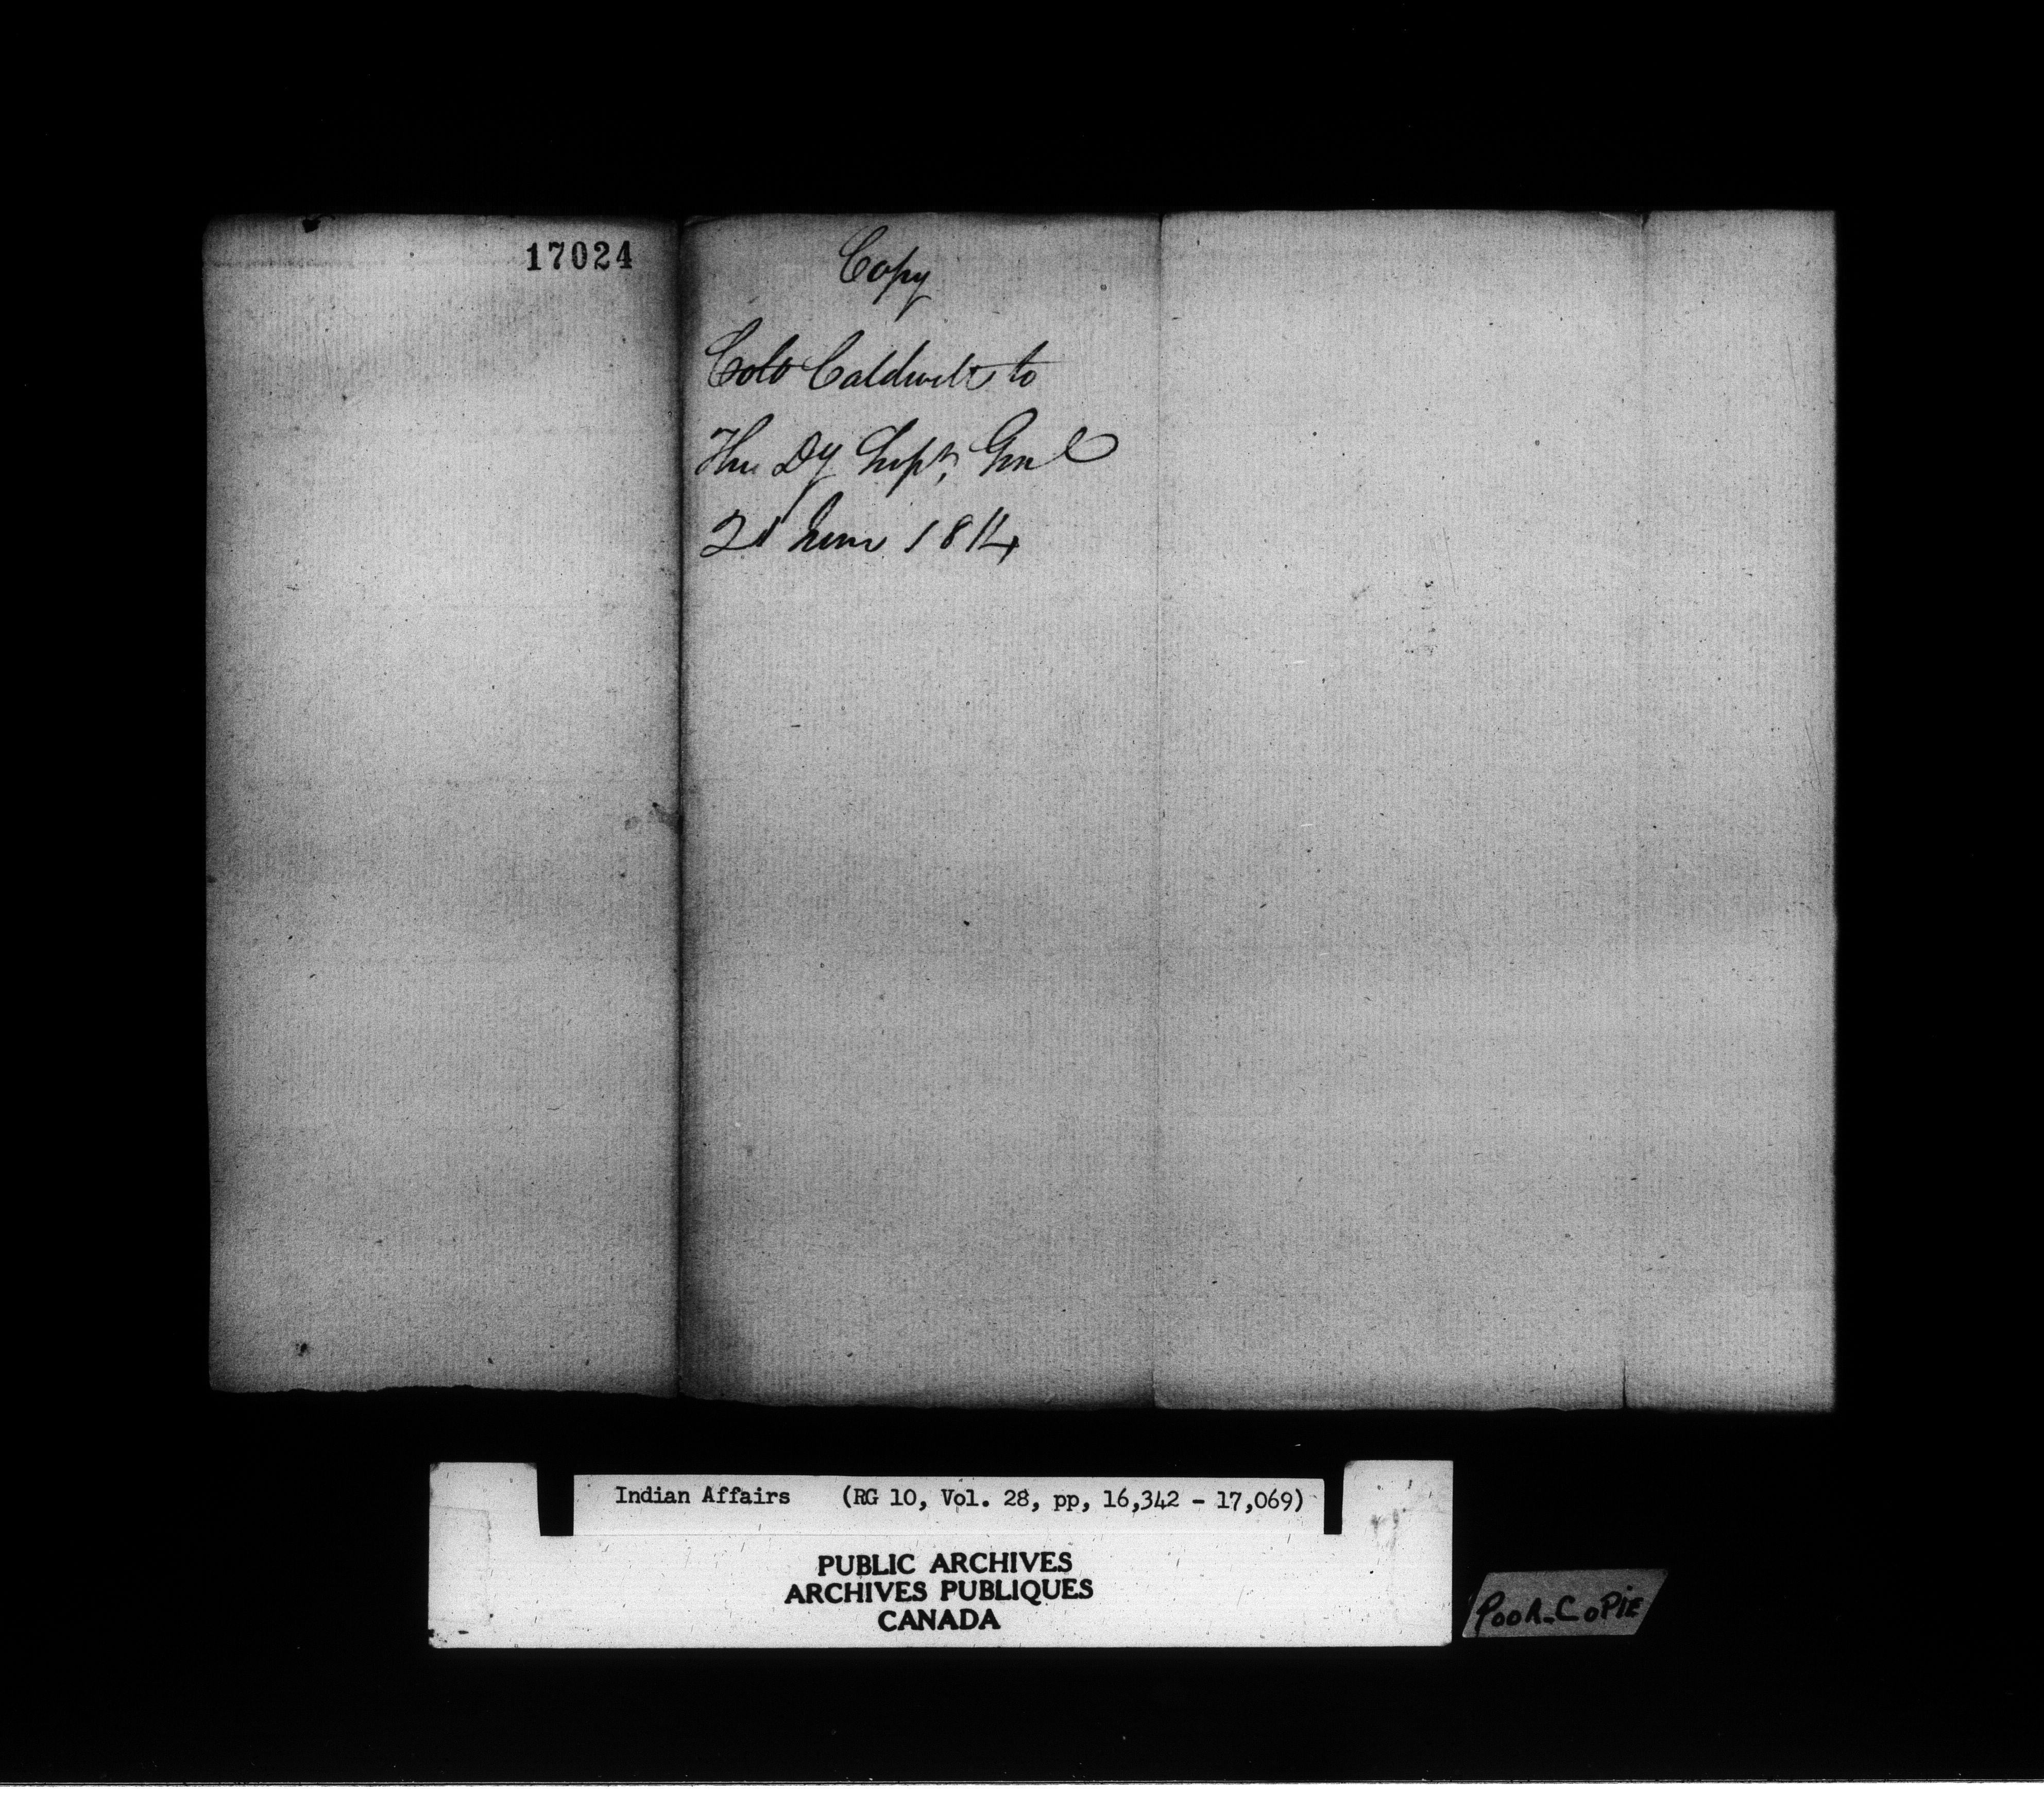 17024
Copy
Colo Caldwell to
The Dy Supt, Genl
21 June 1814
Indian Affairs (RG 10, Vol. 28, pp, 16,342 - 17,069)
PUBLIC ARCHIVES
ARCHIVES PUBLIQUES
CANADA
POOR_COPIE